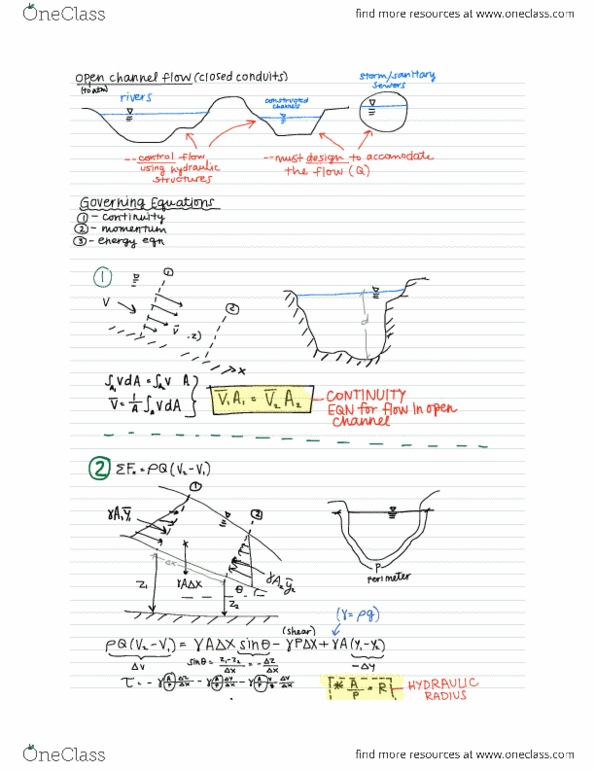 OneClass
find more resources at www.oneclass.com
open channel flow (closed conduits)
(to atm)
rivers
constructed channels
storm/sanitary
sewers
--control flow
using hydraulic
structures
--must design to accomodate
the flow (Q)
Governing Equations
① - continuity
② - momentum
③ - energy eqn
①
①
②
V
V̄
x
d
∫A₁ VdA = ∫A₂ V A
V̄ = 1/A ∫A VdA
V̄₁A₁ = V̄₂A₂
CONTINUITY
EQN for flow in open
channel
② ΣF = ρQ(V₂-V₁)
①
②
γA₁ȳ₁
Δx
γAΔX
θ
γA₂ȳ₂
Z₁
Z₂
P
perimeter
(γ = ρg)
(shear)
ρQ(V₂-V₁) = γAΔX sinθ - γPΔX + γA(y₁-y₂)
ΔV
sinθ = Z₁-Z₂/ΔX = -ΔZ/ΔX
-Δy
* A/P = R
HYDRAULIC
RADIUS
OneClass
find more resources at www.oneclass.com